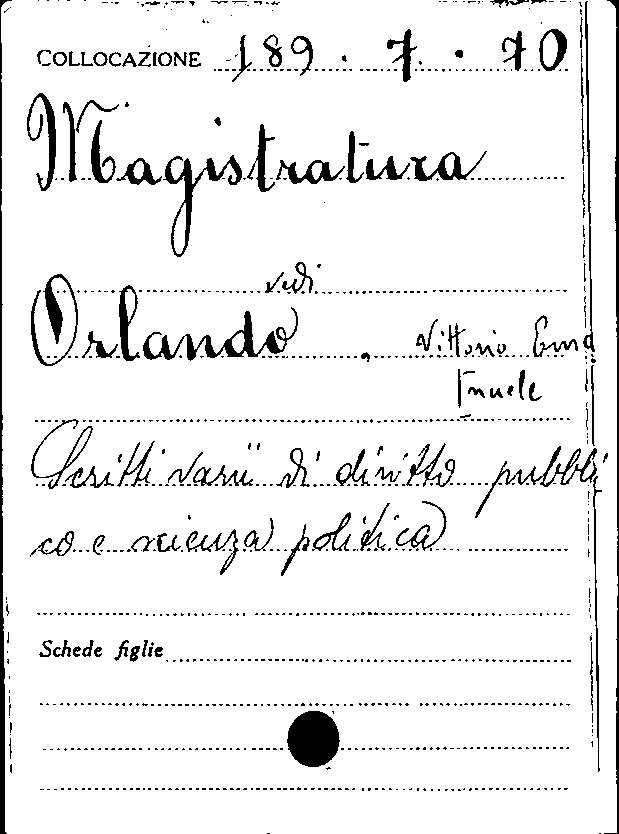 COLLOCAZIONE 189 . 7 . 70
Magistratura
vedi
Orlando , Vittorio Ema
nuele
Scritti varii di diritto pubbli
co e scienza politica
Schede figlie